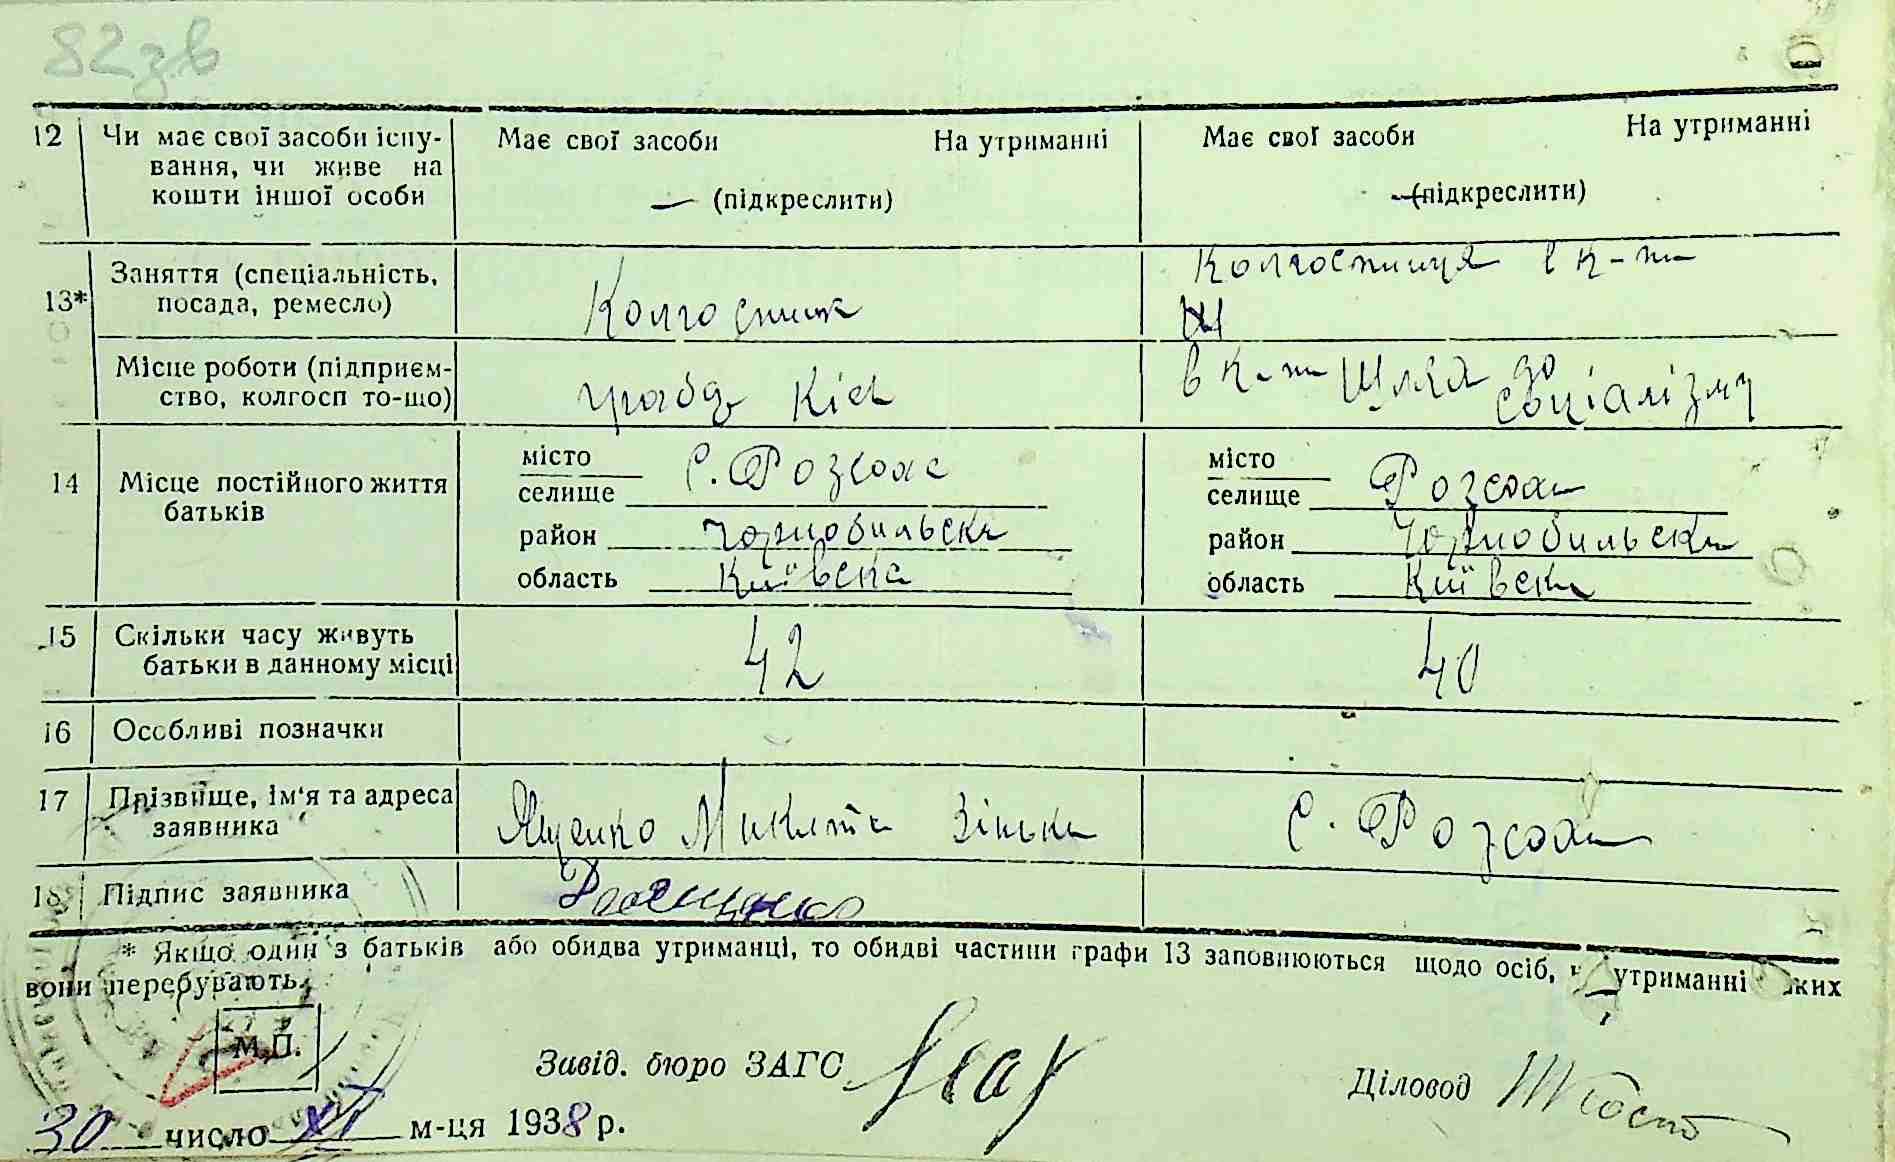 82 зв
12 Чи має свої засоби існу- Має свої засоби На утриманні Має свої засоби На утриманні
вання, чи живе на
кошти іншої особи (підкреслити) (підкреслити)
13* Заняття (спеціальність, Колгоспниця в к-пі
посада, ремесло) Колгоспник
Місце роботи (підприєм- в к-пі Шлях до
ство, колгосп то-що) Київ соціалізму
місто С. Розсоха місто
14 Місце постійного життя селище селище Розсоха
батьків район Чорнобильськ район Чорнобильськ
область Київська область Київська
15 Скільки часу живуть 42 40
батьки в данному місці
16 Особливі позначки
17 Прізвище, ім'я та адреса Ященко Микита Зіньків С. Розсоха
заявника
18 Підпис заявника
* Якщо один з батьків або обидва утриманці, то обидві частини графи 13 заповнюються щодо осіб, утриманні яких
вони перебувають.
М.П.
Завід. бюро ЗАГС Діловод
30 число XI м-ця 1938 р.